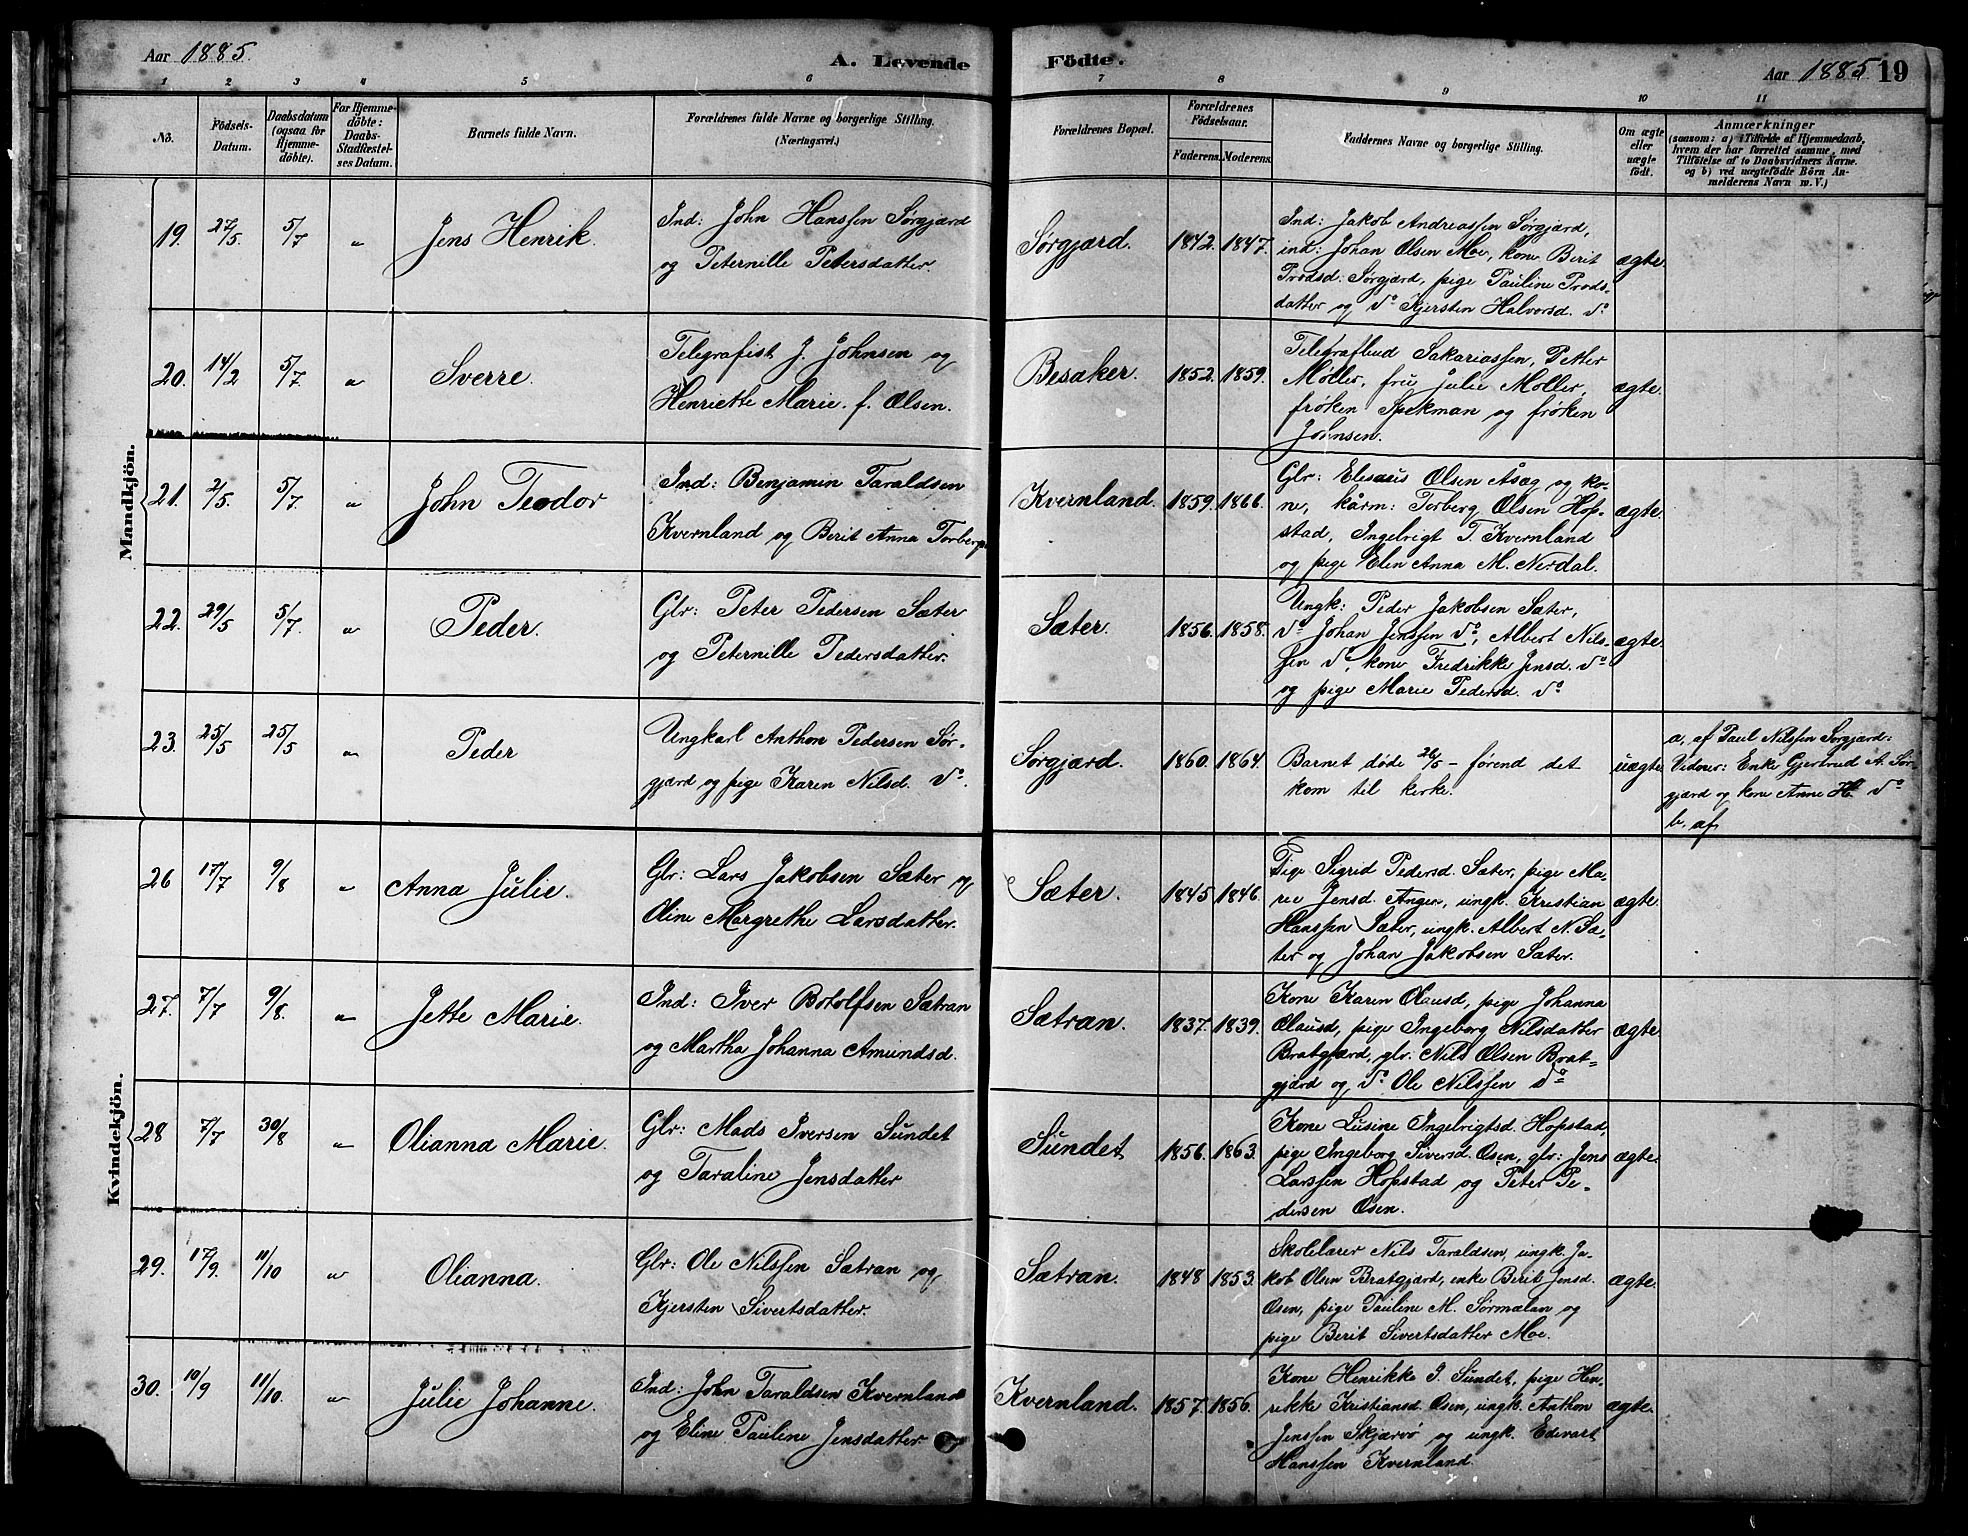 Aar 1885.
A. Levende
Födte.
Aar 1885
19
1 2 3 4 5 6
7 8 9 10 11
No.
Födsels-
Datum.
Daabsdatum
(ogsaa for
Hjemme-
döbte).
For Hjemme-
döbte:
Daabs-
Stadfæstel-
ses Datum.
Barnets fulde Navn.
Forældrenes fulde Navne og borgerlige Stilling.
(Næringsvei.)
Forældrenes Bopæl.
Forældrenes
Födselsaar.
Faderens. Moderens.
Faddernes Navne og borgerlige Stilling.
Om ægte
eller
uægte
födt.
Anmærkninger
(saasom: a) i Tilfælde af Hjemmedaab,
hvem der har forrettet samme, med
Tilföielse af to Daabsvidners Navne.
og b) ved uægtefödte Börn An-
melderens Navn m. V.)
Mandkjön.
19. 27/5 5/7 „ Jens Henrik.
Ind: John Hanssen Sørgjærd
og Peternille Petersdatter.
Sørgjærd. 1842. 1847.
Ind: Jakob Andreassen Sørgjærd,
ind: Johan Olsen Moe, kone Berit
Trodsd. Sørgjærd, pige Pauline Trods-
datter og do Kjersten Halvorsd. do
ægte.
20. 14/2 5/7 „ Sverre.
Telegrafist J. Johnsen og
Henriette Marie f. Olsen.
Besaker. 1852. 1859.
Telegrafbud Sakariassen, Petter
Møller, fru Julie Møller,
frøken Spekman og frøken
Johnsen.
ægte.
21. 2/5 5/7 „ John Teodor
Ind: Benjamin Taraldsen
Kvernland og Berit Anna Torbergs
Kvernland. 1859. 1866.
Glr: Eliseus Olsen Aasæg og ko-
ne, kårm: Torberg Olsen Hop-
stad, Ingelrigt T. Kvernland
og pige Elen Anna M. Nerdal.
ægte.
22. 29/5 5/7 „ Peder.
Glr: Peter Pedersen Sæter
og Peternille Pedersdatter.
Sæter. 1856. 1858.
Ungk: Peder Jakobsen Sæter,
do Johan Jenssen do, Albert Nils-
sen do, kone Fredrikke Jensd. do
og pige Marie Pedersd. do
ægte.
23. 25/5 25/5 „ Peder
Ungkarl Anthon Pedersen Sør-
gjærd og pige Karen Nilsd. do.
Sørgjærd. 1860. 1864.
Barnet døde 26/5 - førend det
kom til kerke.
uægte
a, af Paul Nilssen Sørgjærd:
Vidner: Enke Gjertrud A. Sør-
gjærd og kone Anne H. do
b, af
Kvindekjön.
26 17/7 9/8 „ Anna Julie.
Glr: Lars Jakobsen Sæter og
Oline Margrethe Larsdatter.
Sæter. 1845 1846.
Pige Sigrid Pedersd. Sæter, pige Ma-
rie Jensd. Angen, ungk. Kristian
Hanssen Sæter, ungk. Albert N. Sæ-
ter og Johan Jakobsen Sæter.
ægte.
27. 7/7 9/8. „ Jette Marie.
Ind: Iver Botolfsen Sætran
og Martha Johanna Amundsd.
Sætran. 1837. 1839.
Kone Karen Olausd, pige Johanna
Olausd, pige Ingeborg Nilsdatter
Bratgjærd, glr. Nils Olsen Brat-
gjærd og do Ole Nilssen do
ægte.
28 7/7 30/8 „ Olianna Marie.
Glr: Mads Iversen Sundet
og Taraline Jensdatter
Sundet 1856. 1863.
Kone Lusine Ingelrigtsd. Hopstad,
pige Ingeborg Siversd. Osen, glr: Jens
Larssen Hopstad og Peter Pe-
dersen Osen.
ægte.
29. 17/9. 11/10 „ Olianna.
Glr: Ole Nilssen Sætran og
Kjersten Sivertsdatter.
Sætran. 1848 1853.
Skolelærer Nils Taraldsen, ungk. Ja-
kob Olsen Bratgjærd, enke Berit Jensd.
Osen, pige Pauline M. Sørmælan og
pige Berit Sivertsdatter Moe.
ægte.
30. 10/9 11/10. „ Julie Johanne.
Ind: John Taraldsen Kvernland
og Eline Pauline Jensdatter
Kvernland. 1857. 1856.
Kone Henrikke J. Sundet, pige Hen-
rikke Kristiansd. Osen, ungk. Anthon
Jenssen Skjærvø og ungk. Edevart
Hanssen Kvernland.
ægte.